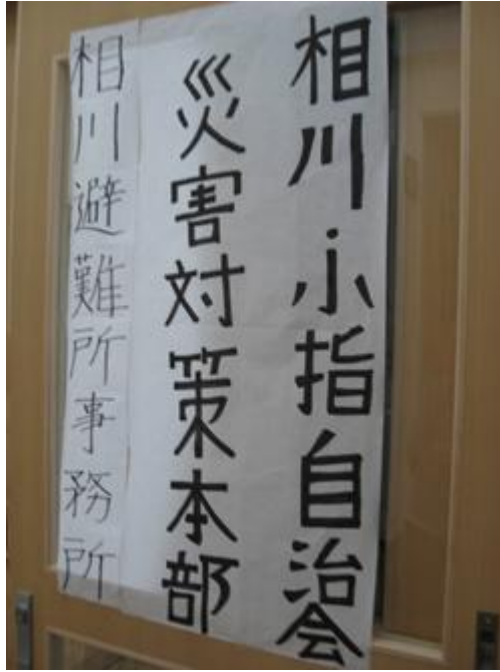 相川・小指自治会
災害対策本部
相川避難所事務所